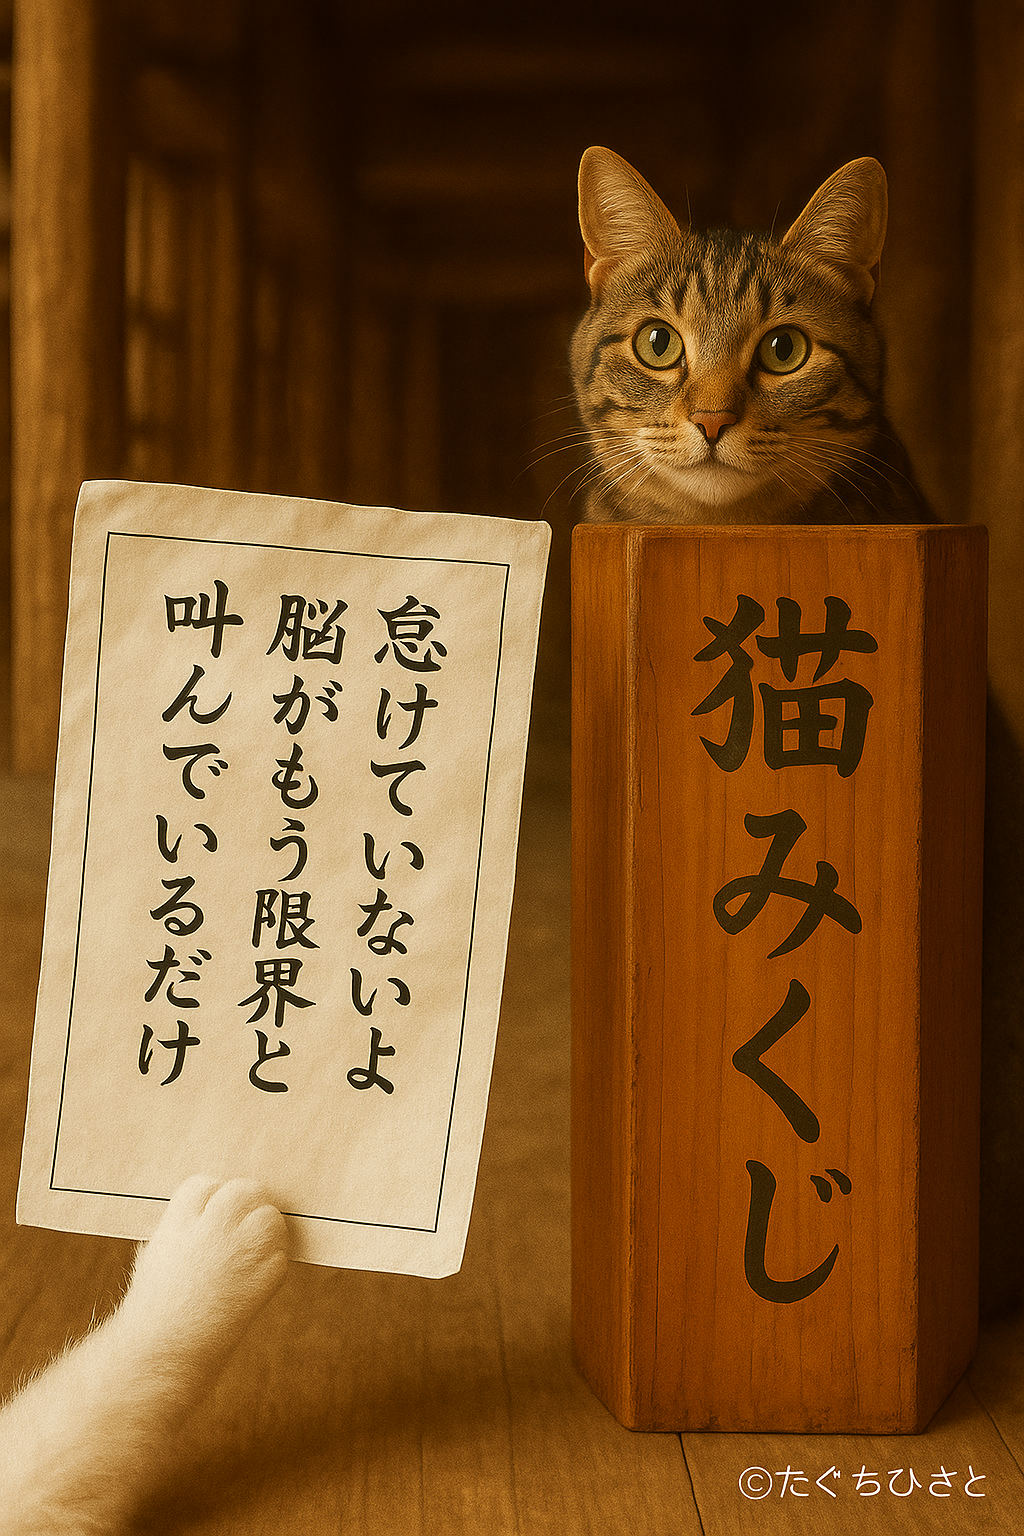 怠けていないよ
脳がもう限界と
叫んでいるだけ
猫みくじ
©たぐちひさと